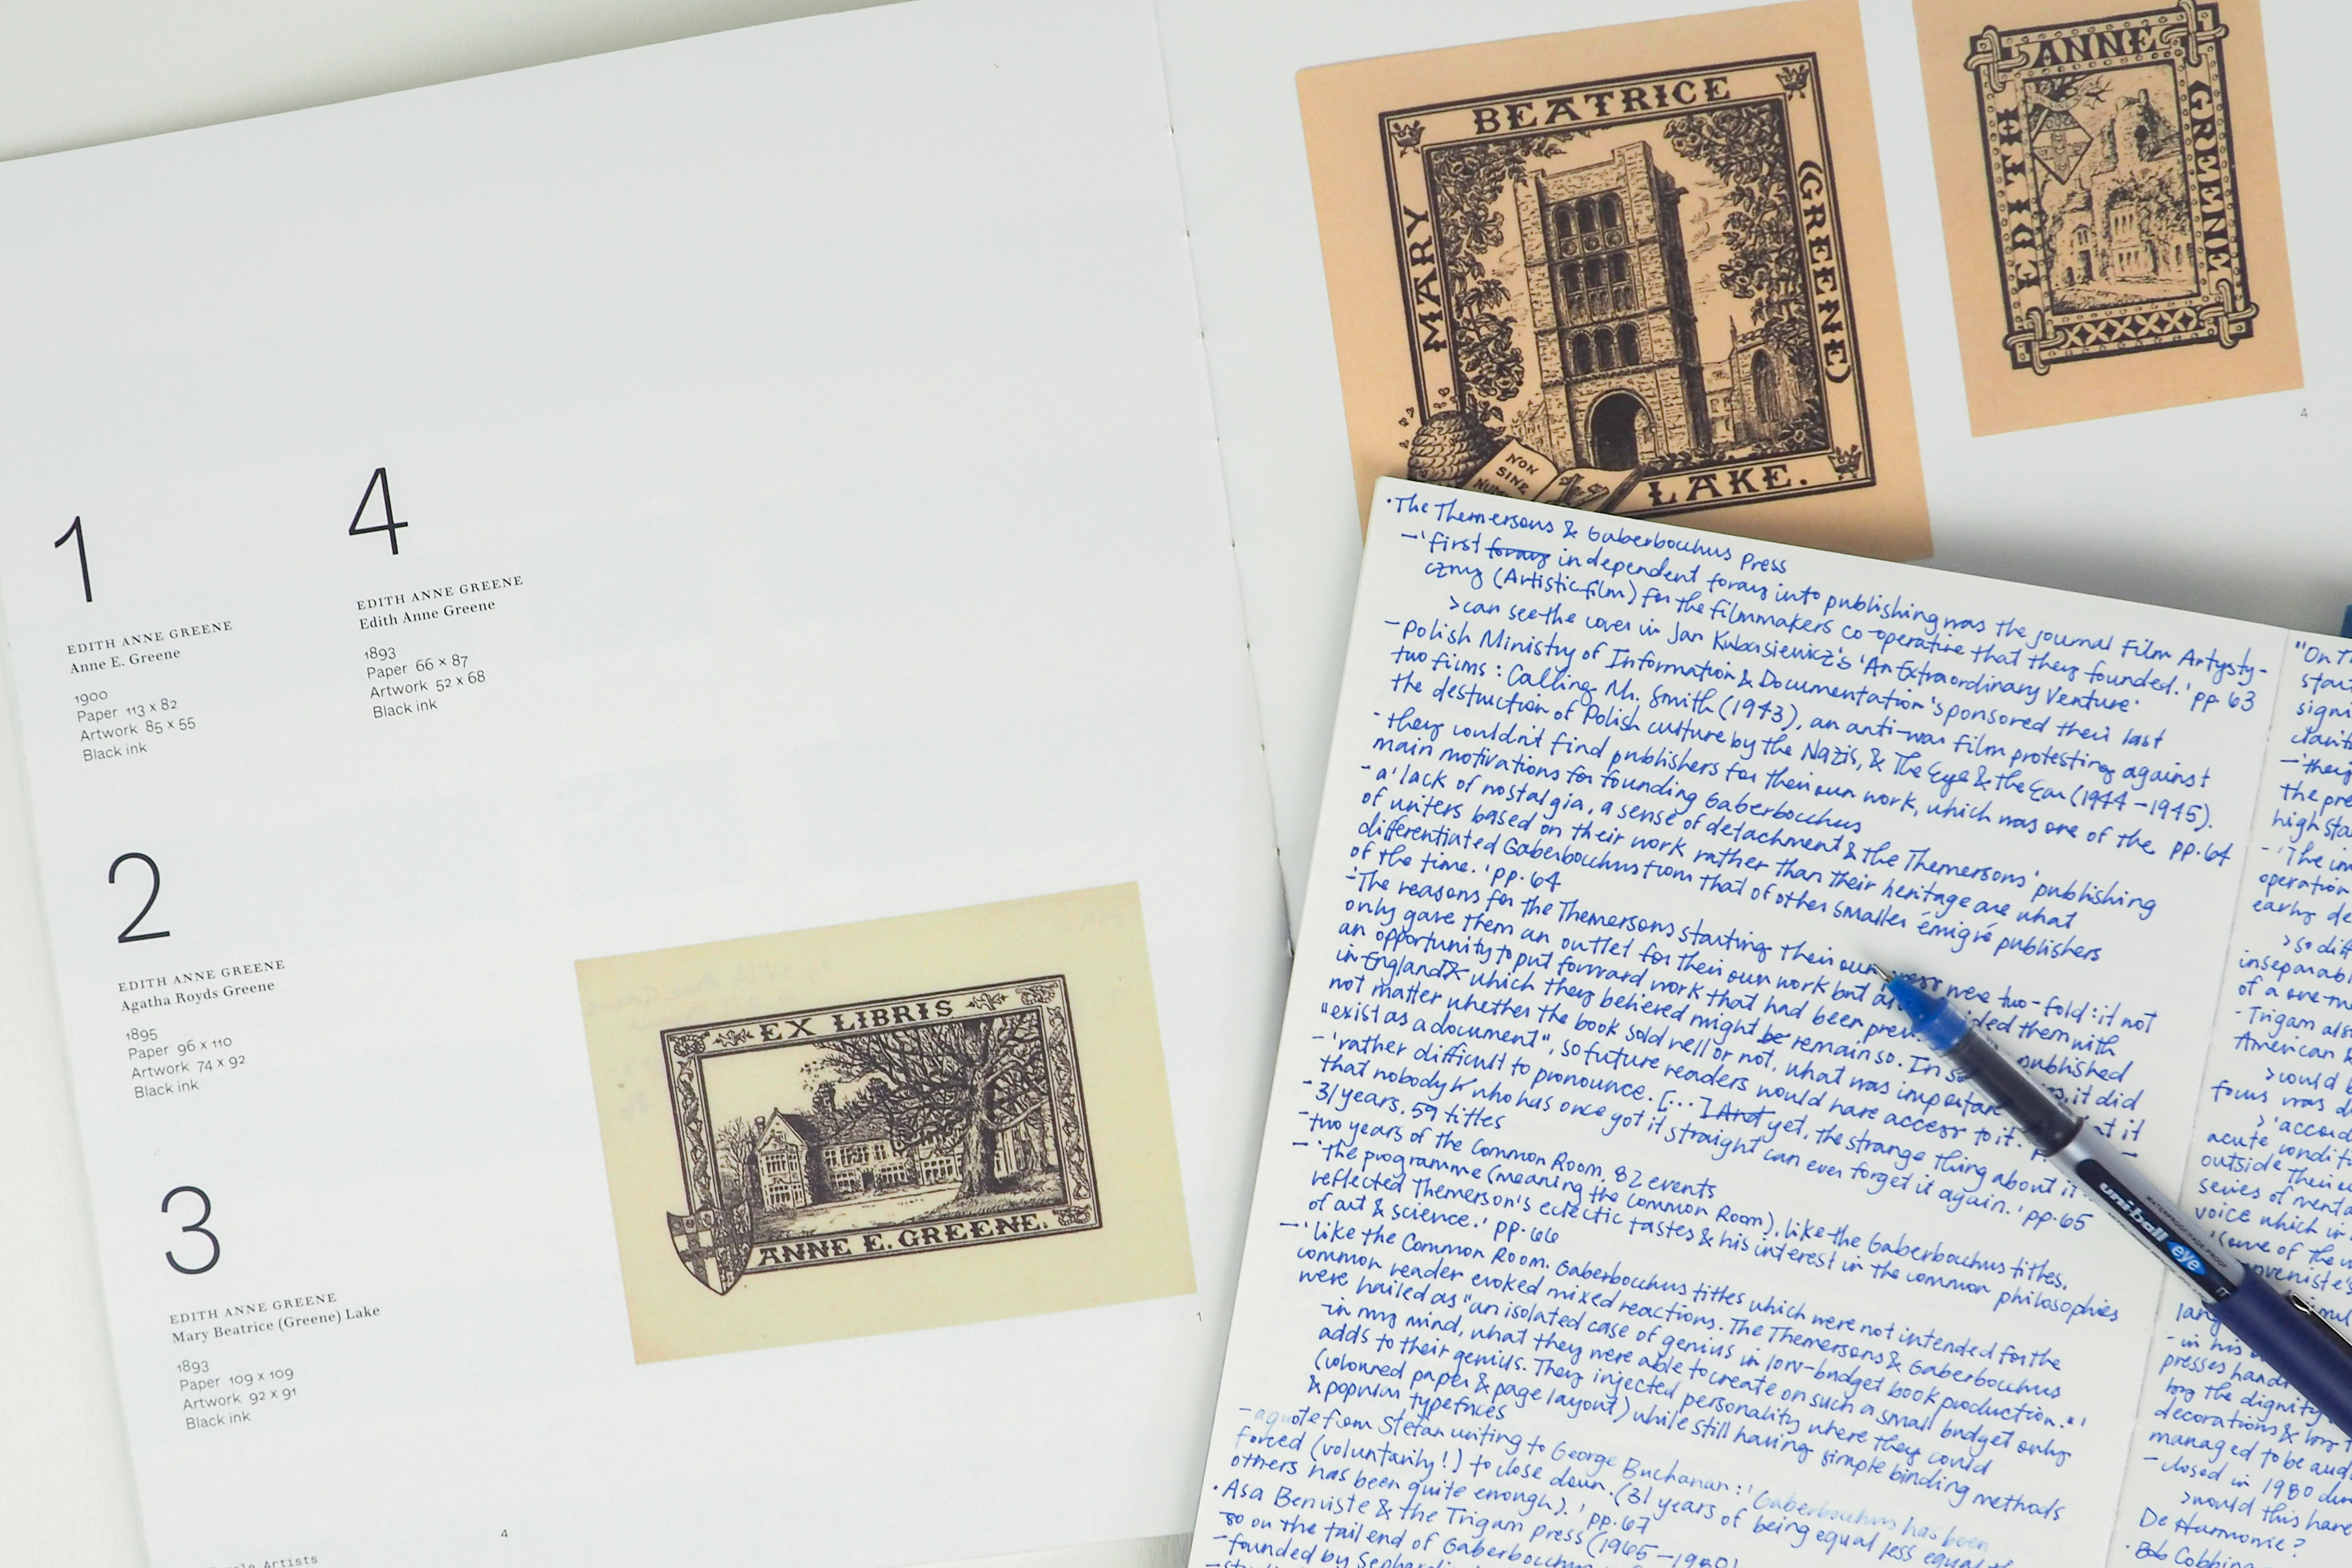 1
EDITH ANNE GREENE
Anne E. Greene
1900
Paper 113 × 82
Artwork 85 × 55
Black ink
4
EDITH ANNE GREENE
Edith Anne Greene
1893
Paper 66 × 87
Artwork 52 × 68
Black ink
2
EDITH ANNE GREENE
Agatha Royds Greene
1895
Paper 96 × 110
Artwork 74 × 92
Black ink
3
EDITH ANNE GREENE
Mary Beatrice (Greene) Lake
1893
Paper 109 × 109
Artwork 92 × 91
Black ink
4
Artists
EX LIBRIS
ANNE E. GREENE.
1
MARY
BEATRICE
(GREENE)
LAKE.
NON
SINE
EDITH
ANNE
GREENE
4
· The Themersons & Gaberbocchus Press
– 'first foray independent foray into publishing was the journal Film Artysty-
czny (Artistic film) for the filmmakers co-operative that they founded.' pp. 63
> can see the cover in Jan Kubasiewicz's 'An Extraordinary Venture'
– Polish Ministry of Information & Documentation sponsored their last
two films: Calling Mr. Smith (1943), an anti-war film protesting against
the destruction of Polish culture by the Nazis, & The Eye & the Ear (1944–1945).
- they couldn't find publishers for their own work, which was one of the pp. 64
main motivations for founding Gaberbocchus
– a 'lack of nostalgia, a sense of detachment & the Themersons' publishing
of writers based on their work rather than their heritage are what
differentiated Gaberbocchus from that of other smaller émigré publishers
of the time.' pp. 64
- 'The reasons for the Themersons starting their own press were two-fold: it not
only gave them an outlet for their own work but also provided them with
an opportunity to put forward work that had been prev published
in England & which they believed might be remain so. In so it did
not matter whether the book sold well or not, what was important it
"exist as a document", so future readers would have access to it.
– 'rather difficult to pronounce. [...] And yet, the strange thing about it
that nobody who has once got it straight can ever forget it again.' pp. 65
– 31 years, 59 titles
– two years of the Common Room, 82 events
– 'the programme (meaning the Common Room), like the Gaberbocchus titles,
reflected Themerson's eclectic tastes & his interest in the common philosophies
of art & science.' pp. 66
– 'like the Common Room, Gaberbocchus titles which were not intended for the
common reader evoked mixed reactions. The Themersons & Gaberbocchus
were hailed as "an isolated case of genius in low-budget book production."'
– in my mind, what they were able to create on such a small budget only
adds to their genius. They injected personality where they could
(coloured paper & page layout) while still having simple binding methods
& popular typefaces
– a quote from Stefan writing to George Buchanan: 'Gaberbocchus has been
forced (voluntarily!) to close down. (31 years of being equal less equal
others has been quite enough).' pp. 67
· Asa Benviste & the Trigram Press (1965–1980)
so on the tail end of Gaberbocchus
– founded by
uni-ball
eye
"On
–they
the pre
high sta
- 'The im
operation
early de
> so diff
inseparab
of a one-m
- Trigram als
American &
> would
focus was d
> 'accord
acute conditi
outside their
series of menta
voice which
some of the
– in his
presses
by the dignity
decorations &
managed to be
– closed in 1980
> would this have
De Harmonie?
· Bob Cobbing